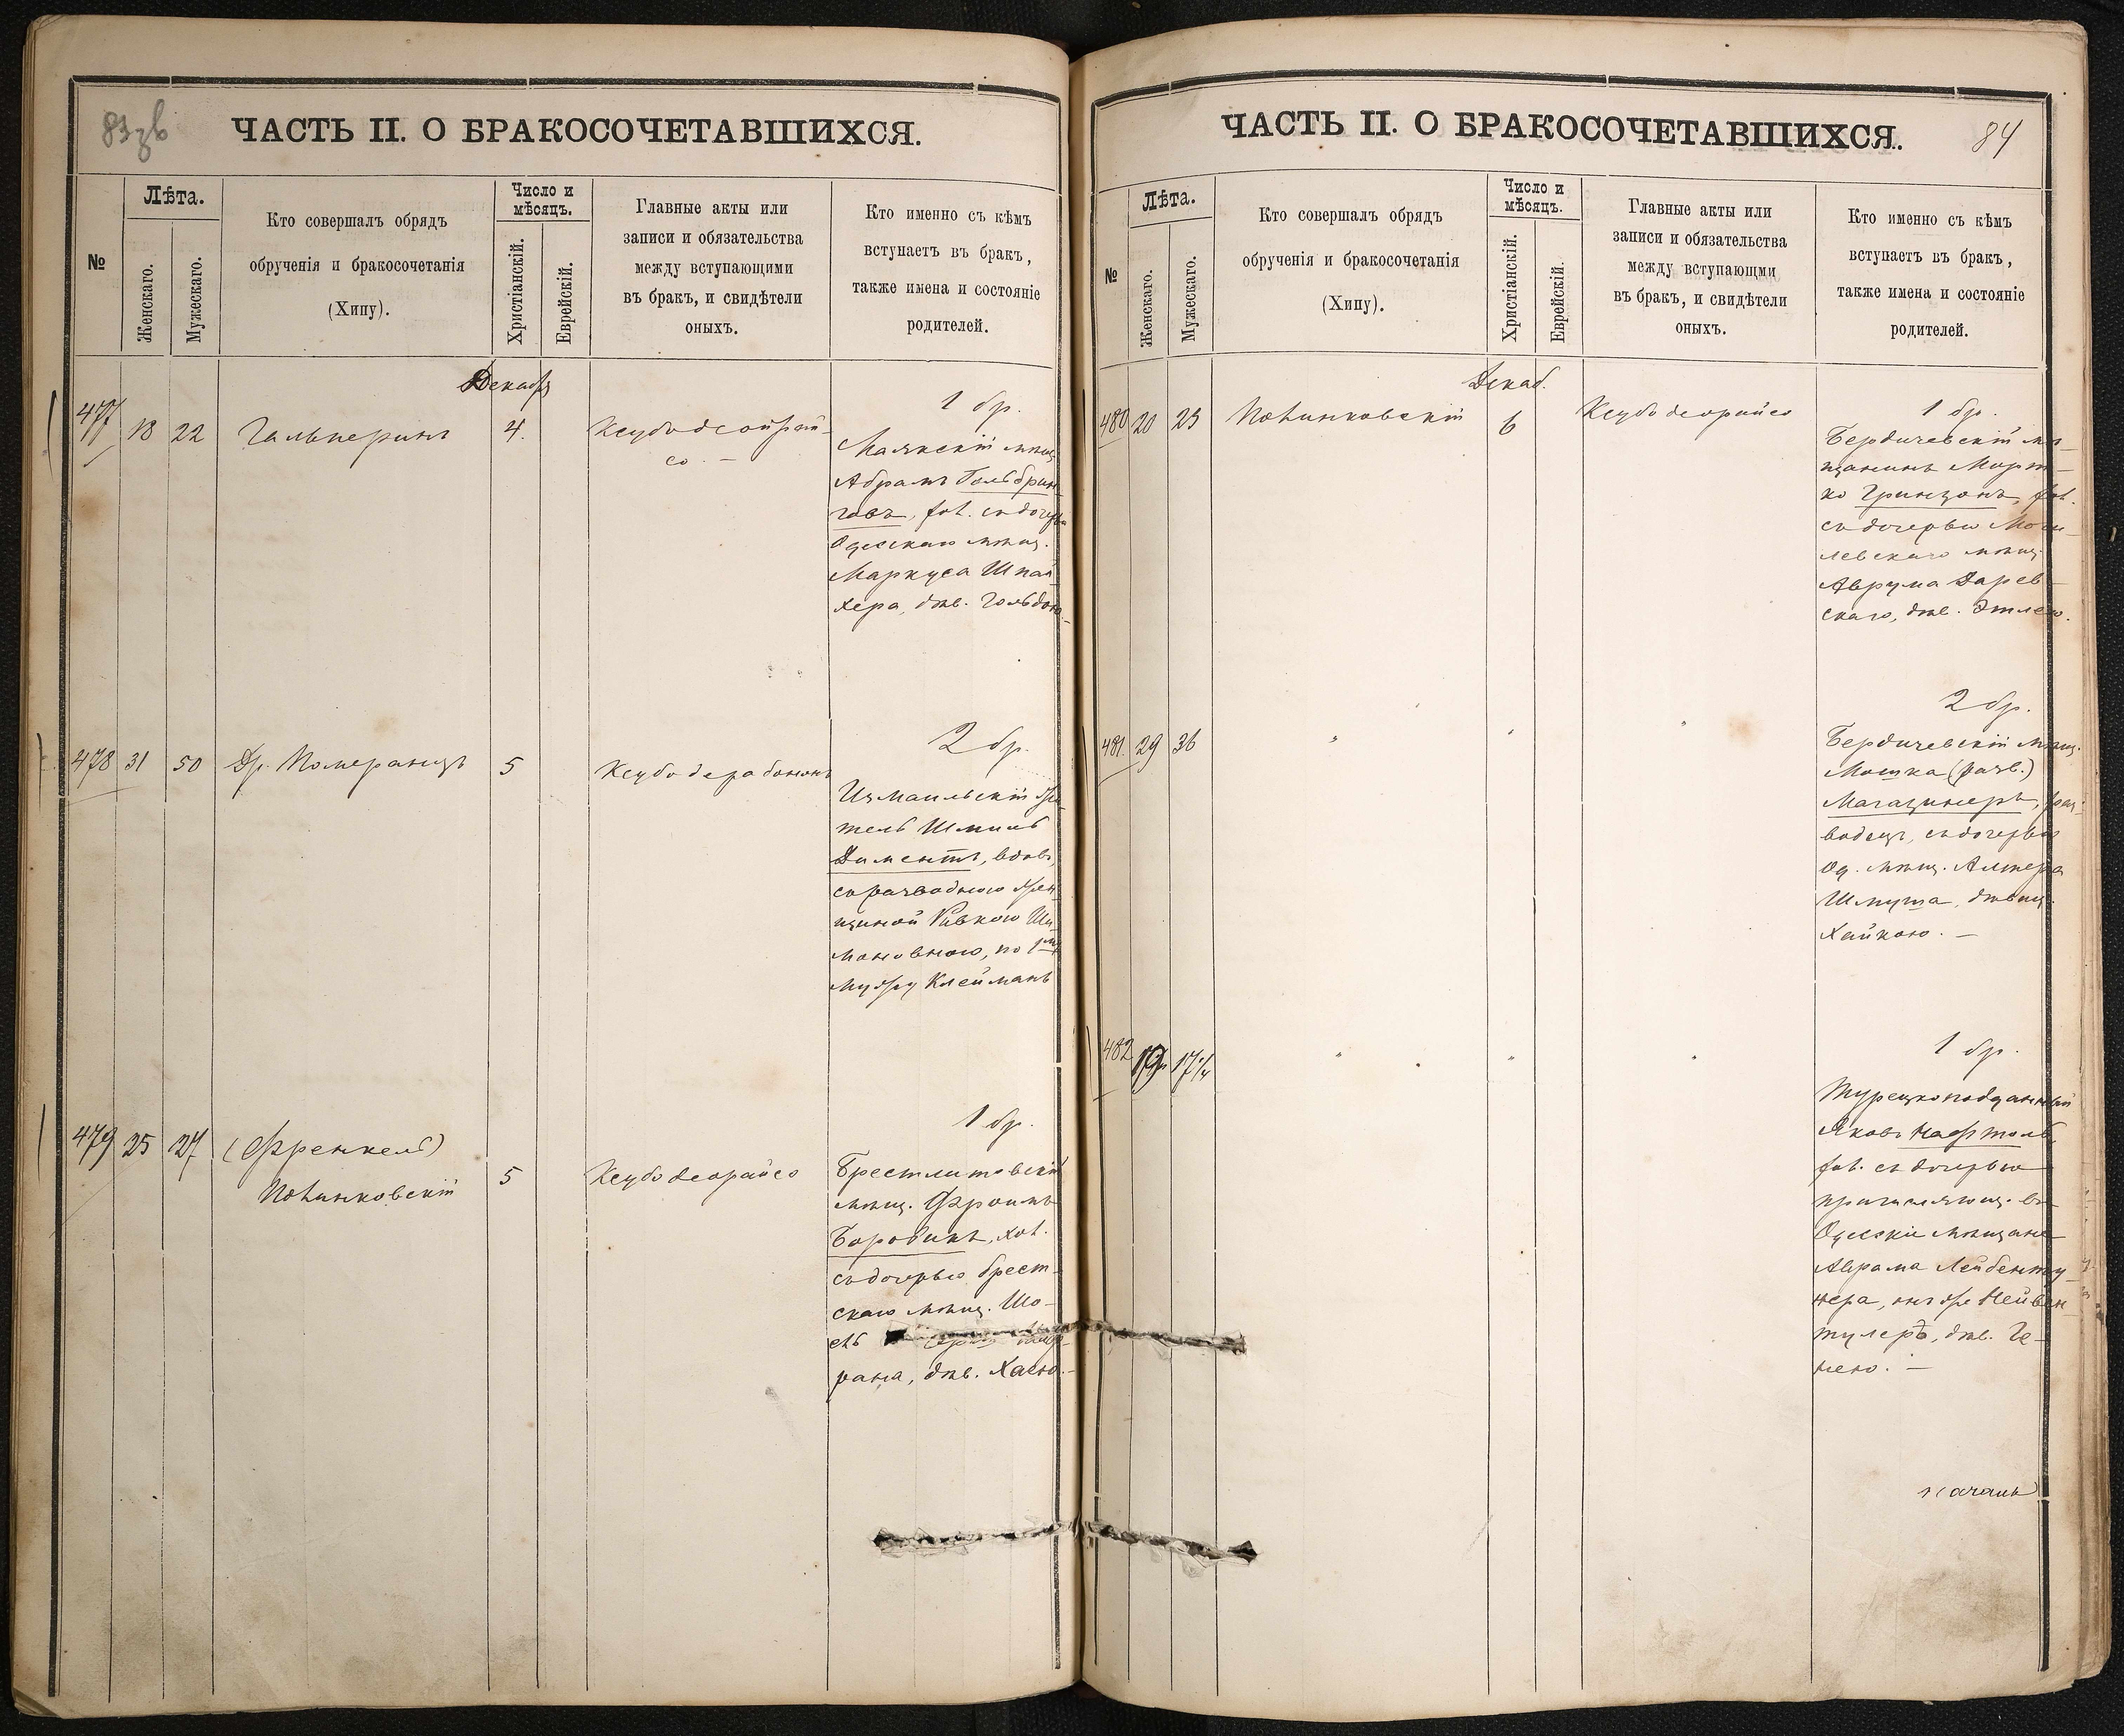 83 зв
ЧАСТЬ II. О БРАКОСОЧЕТАВШИХСЯ.
№
Лѣта.
Женскаго.
Мужескаго.
Кто совершалъ обрядъ
обрученія и бракосочетанія
(Хипу).
Число и
мѣсяцъ.
Христіанскій.
Еврейскій.
Главные акты или
записи и обязательства
между вступающими
въ бракъ, и свидѣтели
оныхъ.
Кто именно съ кѣмъ
вступаетъ въ бракъ,
также имена и состояніе
родителей.
Декабрь
477 18 22 Гальперинъ 4. Ксубо деойрай-
со. —
1 бр.
Маякскій мѣщ.
Абрамъ Гольбрин-
совъ, хол. съ дочерью
Одесскаго мѣщ.
Маркуса Шпай-
хера, дѣв. Гольдою.
478 31 50 Др. Померанцъ 5 Ксубо дерабононъ
2 бр.
Измаильскій жи-
тель Шмиль
Диментъ, вдов.,
съ разводною жен-
щиной Ривкою Ши-
моновною, по 1му
мужу Клейманъ
479 25 27 (Френкель)
Починковскій 5 Ксубо деорайсо
1 бр.
Брестлитовскій
мѣщ. Фроимъ
Боровикъ, хол.
съ дочерью брест-
скаго мѣщ. Шо-
рана, дѣв. Хаею. —
84
ЧАСТЬ II. О БРАКОСОЧЕТАВШИХСЯ.
№
Лѣта.
Женскаго.
Мужескаго.
Кто совершалъ обрядъ
обрученія и бракосочетанія
(Хипу).
Число и
мѣсяцъ.
Христіанскій.
Еврейскій.
Главные акты или
записи и обязательства
между вступающми
въ бракъ, и свидѣтели
оныхъ.
Кто именно съ кѣмъ
вступаетъ въ бракъ,
также имена и состояніе
родителей.
Декаб.
480 20 23 Починковскій 6 Ксубо деорайсо
1 бр.
Бердичевскій мѣ-
щанинъ Морт-
ко Гринцонъ, хол.
съ дочерью Моги-
левскаго мѣщ.
Аврума Даров-
скаго, дѣв. Этлею.
481. 29 36 " " "
2 бр.
Бердичевскій мѣщ.
Мошка (разв.)
Магазинеръ, раз-
водецъ, съ дочерью
Од. мѣщ. Алтера
Шмуша, дѣвиц.
Хайкою. —
482 19 17¼ " " "
1 бр.
Турецкоподданный
Яковъ Нафтоль,
хол. съ дочерью
причисляющ. въ
Одесскіе мѣщане
Аврама Лейбенту-
лера, онъ же Нейвен
тулеръ, дѣв. Ге-
нею. —